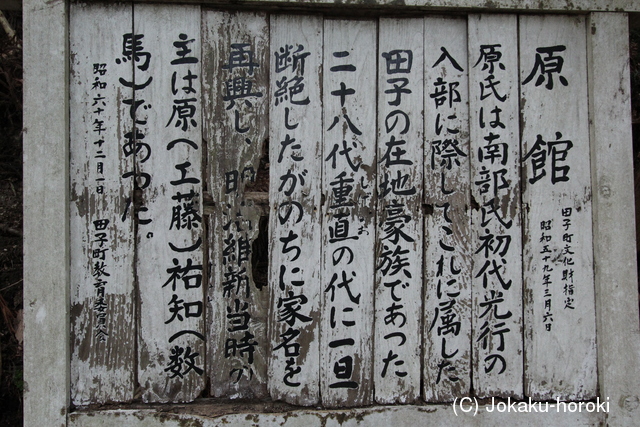 原館
田子町文化財指定
昭和五十九年二月六日
原氏は南部氏初代光行の
入部に際してこれに属した
田子の在地豪族であった
二十八代重直の代に一旦
しげなお
断絶したがのちに家名を
再興し、明治維新当時の
主は原(工藤)祐知(数
馬)であった。
昭和六十年十二月一日
田子町教育委員会
(C) Jokaku-horoki